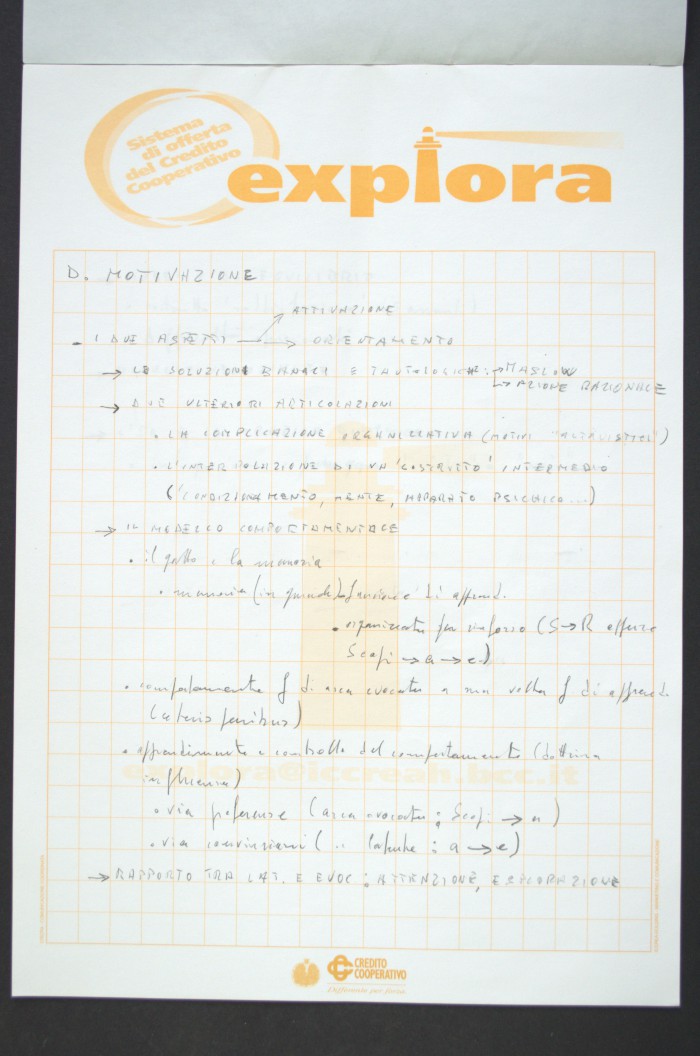 Sistema
di offerta
del Credito
Cooperativo
explora
D. MOTIVAZIONE
ATTIVAZIONE
. I DUE ASPETTI → ORIENTAMENTO
→ LE SOLUZIONI BANALI E TAUTOLOGICHE: → MASLOW
→ AZIONE RAZIONALE
→ DUE ULTERIORI ARTICOLAZIONI
. LA COMPLICAZIONE ORGANIZZATIVA (MOTIVI "ALTRUISTICI")
. L'INTERPOLAZIONE DI UN 'COSTRUTTO' INTERMEDIO
(CONDIZIONAMENTO, MENTE, APPARATO PSICHICO...)
→ IL MODELLO COMPORTAMENTALE
. il gatto e la memoria
. memoria (in quanto) funzione di apprend.
. organizzata per rinforzo (S→R oppure
Scopi → a → e)
. comportamento f di area evocata a sua volta f di apprend.
(ceteris paribus)
. apprendimento e controllo del comportamento (dottrina
influenza)
. via preferenze (area evocata: Scopi → a)
. via convinzioni ( " latente: a → e)
→ RAPPORTO TRA LAT. E EVOC: ATTENZIONE, ESPLORAZIONE
explora@iccreah.bcc.it
CREDITO
COOPERATIVO
Differente per forza